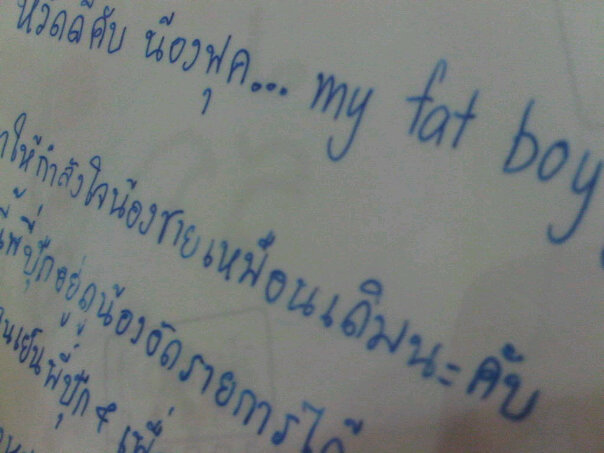 หวัดดีคับ น้องฟุค... my fat boy
ให้กำลังใจน้องชายเหมือนเดิมนะคับ
พี่ปุ๊กอยู่ดูน้องอัดรายการได้
เย็นพี่ปุ๊ก &